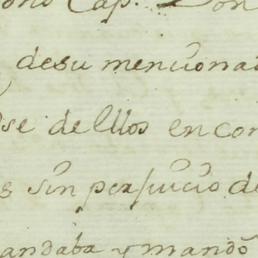 ono Cap. Don
desu menciona
se dellos en con
s sin perjuicio de
andaba y mandó